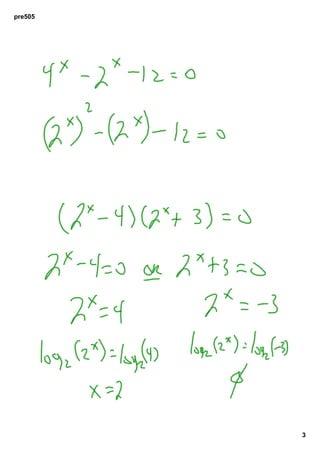 pre505
4^x - 2^x - 12 = 0
(2^x)^2 - (2^x) - 12 = 0
(2^x - 4)(2^x + 3) = 0
2^x - 4 = 0 or 2^x + 3 = 0
2^x = 4 2^x = -3
log₂(2^x) = log₂(4) log₂(2^x) = log₂(-3)
x = 2 ∅
3